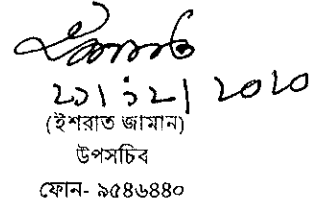 ২১/১২/২০২০
(ইশরাত জামান)
উপসচিব
ফোন- ৯৫৪৬৪৪০